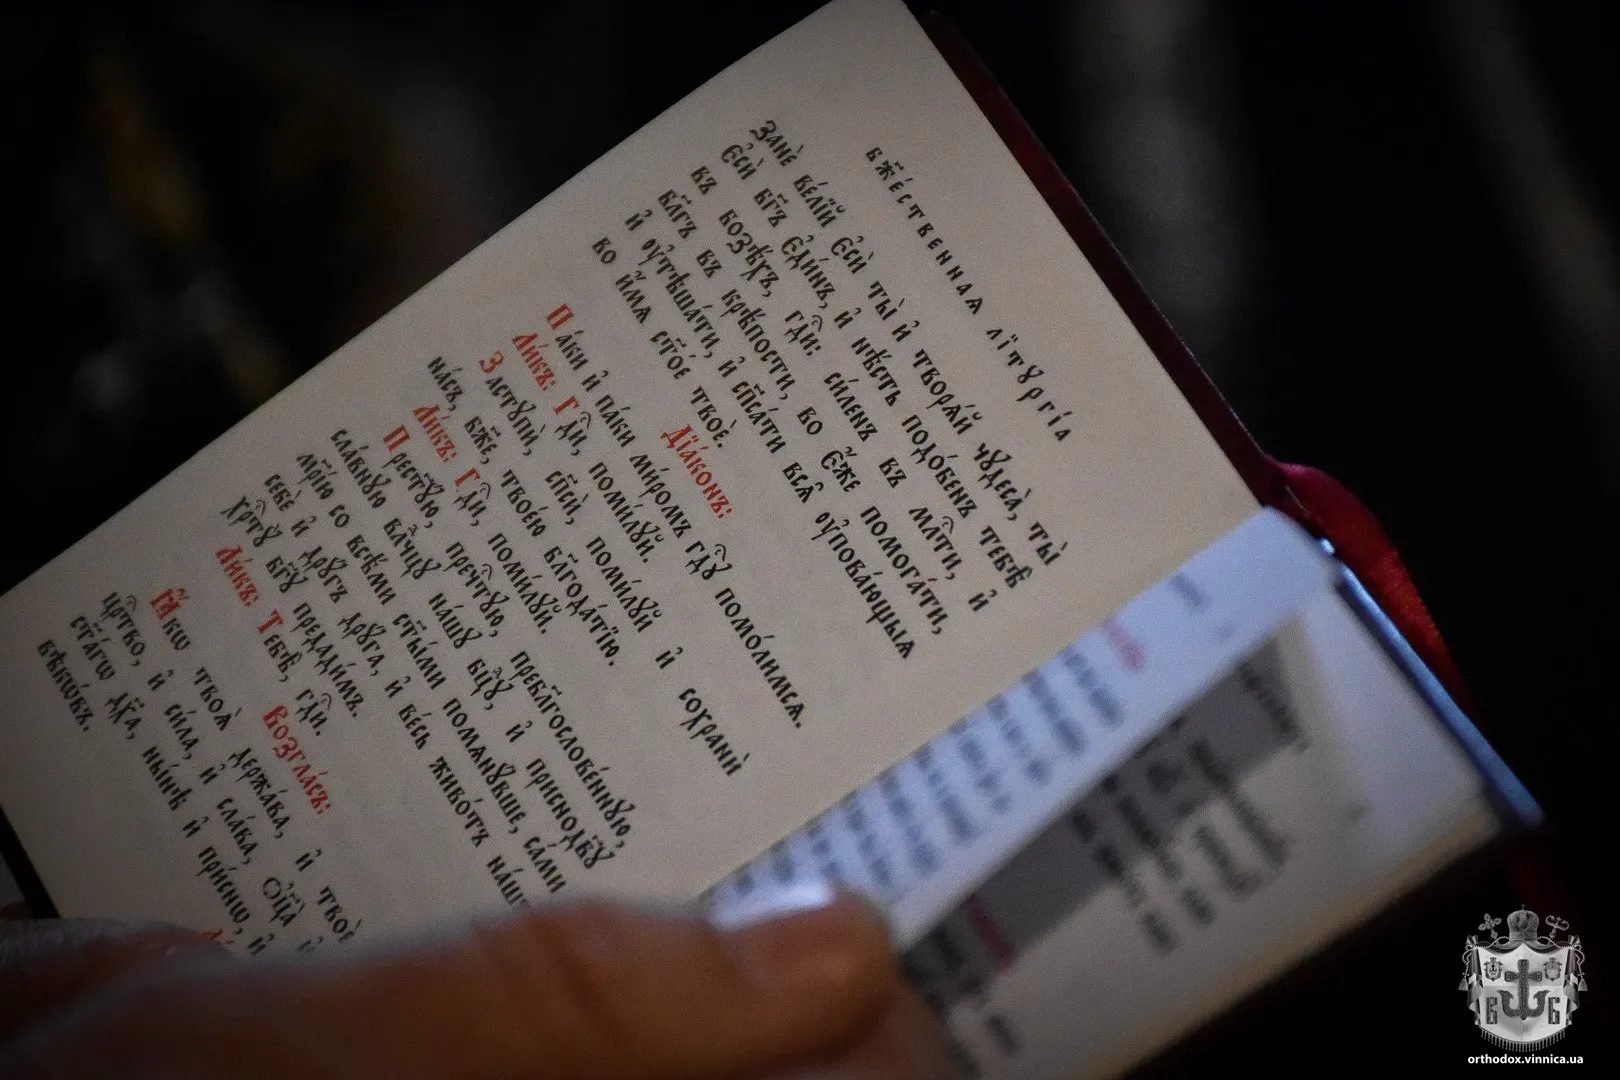 бж҃е́ственнаѧ лїтꙋргі́а
Занѐ ве́лїй є҆сѝ ты̀ и҆ творѧ́й чꙋдеса̀, ты̀
є҆сѝ бг҃ъ є҆ди́нъ, и҆ нѣ́сть подо́бенъ тебѣ̀
въ бозѣ́хъ, гдⷭ҇и: си́ленъ въ млⷭ҇ти, и҆
бл҃гъ въ крѣ́пости, во є҆́же помога́ти,
и҆ ᲂу҆тѣша́ти, и҆ сп҃са́ти всѧ̑ ᲂу҆пова́ющыѧ
во и҆́мѧ ст҃о́е твоѐ.
Дїа́конъ:
Па́ки и҆ па́ки ми́ромъ гдⷭ҇ꙋ помо́лимсѧ.
Ли́къ: Гдⷭ҇и, поми́лꙋй.
Застꙋпѝ, сп҃сѝ, поми́лꙋй и҆ сохранѝ
на́съ, бж҃е, твое́ю блгода́тїю.
Ли́къ: Гдⷭ҇и, поми́лꙋй.
Прест҃ꙋ́ю, пречⷭ҇тꙋю, пребл҃гослове́ннꙋю,
сла́внꙋю влⷣчцꙋ на́шꙋ бцⷣꙋ и҆ приснодв҃ꙋ
мр҃і́ю со всѣ́ми ст҃ы́ми помѧнꙋ́вше, са́ми
себѐ и҆ дрꙋ́гъ дрꙋ́га, и҆ ве́сь живо́тъ на́шъ
хрⷭ҇тꙋ̀ бг҃ꙋ предади́мъ.
Ли́къ: Тебѣ̀, гдⷭ҇и.
Возгла́съ:
Ꙗ҆́кѡ твоѧ̀ держа́ва, и҆ твоѐ
црⷭ҇тво, и҆ си́ла, и҆ сла́ва, Ѻ҆ц҃а̀ и҆
ст҃а́гѡ дх҃а, ны́нѣ и҆ при́снѡ, и҆
вѣкѡ́въ.
В Б
orthodox.vinnica.ua